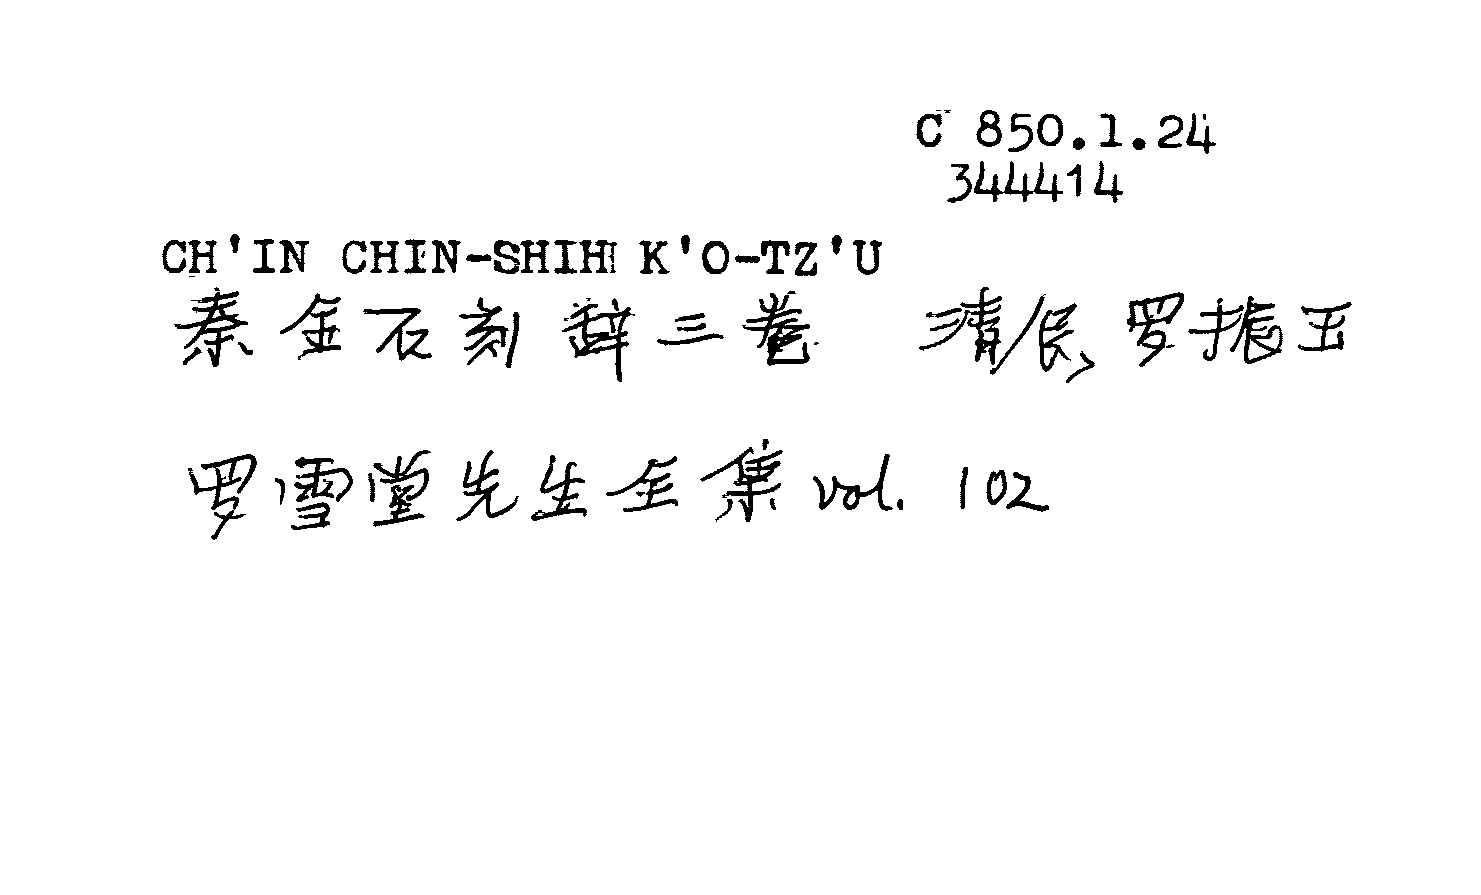 C 850.1.24
344414
CH'IN CHIN-SHIH K'O-TZ'U
秦金石刻辞三卷 清/民、罗振玉
罗雪堂先生全集 vol. 102